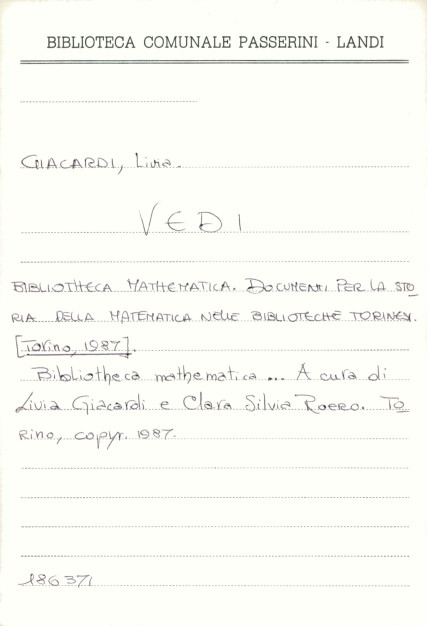 BIBLIOTECA COMUNALE PASSERINI - LANDI
GIACARDI, Livia.
VEDI
BIBLIOTHECA MATHEMATICA. DOCUMENTI PER LA STO
RIA DELLA MATEMATICA NELLE BIBLIOTECHE TORINESI.
[Torino, 1987].
Bibliotheca mathematica ... A cura di
Livia Giacardi e Clara Silvia Roero. To
rino, copyr. 1987.
186371